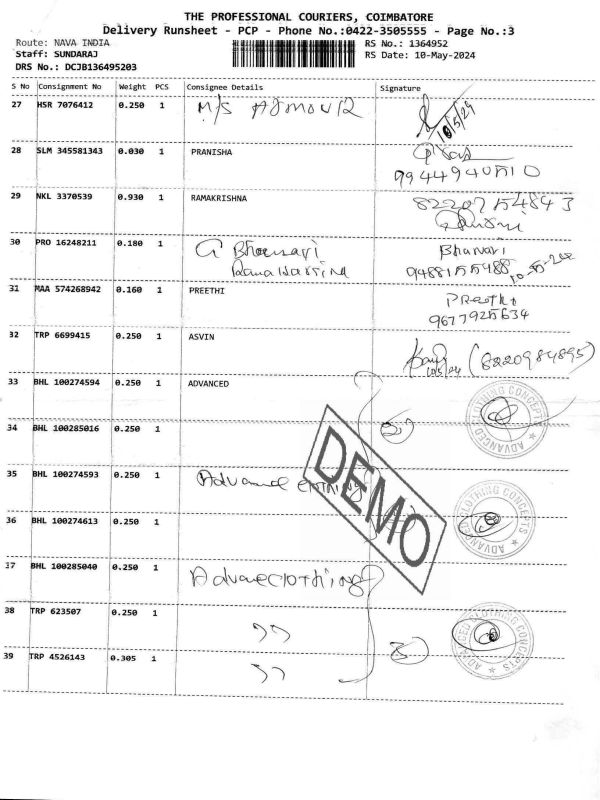 THE PROFESSIONAL COURIERS, COIMBATORE
Delivery Runsheet - PCP - Phone No.:0422-3505555 - Page No.:3
Route: NAVA INDIA RS No.: 1364952
Staff: SUNDARAJ RS Date: 10-May-2024
DRS No.: DCJB136495203
S No Consignment No Weight PCS Consignee Details Signature
27 HSR 7076412 0.250 1 M/S
10/5/24
28 SLM 345581343 0.030 1 PRANISHA
29 NKL 3370539 0.930 1 RAMAKRISHNA
30 PRO 16248211 0.180 1 G
31 MAA 574268942 0.160 1 PREETHI Preethi
9677925634
32 TRP 6699415 0.250 1 ASVIN
10/5/24 (8220984895)
33 BHL 100274594 0.250 1 ADVANCED
ADVANCED CLOTHING CONCEPTS
34 BHL 100285016 0.250 1
DEMO
35 BHL 100274593 0.250 1 Advance clothing
ADVANCED CLOTHING CONCEPTS
36 BHL 100274613 0.250 1
37 BHL 100285040 0.250 1
Advaneclothing
38 TRP 623507 0.250 1 ,,
ADVANCED CLOTHING CONCEPTS
39 TRP 4526143 0.305 1 ,,